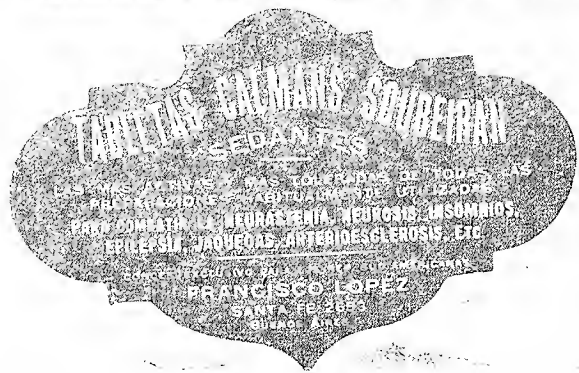 TABLETAS CALMANS SOUBEIRAN
SEDANTES
LAS MAS ACTIVAS Y MAS TOLERADAS DE TODAS LAS
PREPARACIONES HABITUALMENTE UTILIZADAS
PARA COMBATIR LA NEURASTENIA, NEUROSIS, INSOMNIOS,
EPILEPSIA, JAQUECAS, ARTERIOESCLEROSIS, ETC
FRANCISCO LOPEZ
SANTA FE
BUENOS AIRES